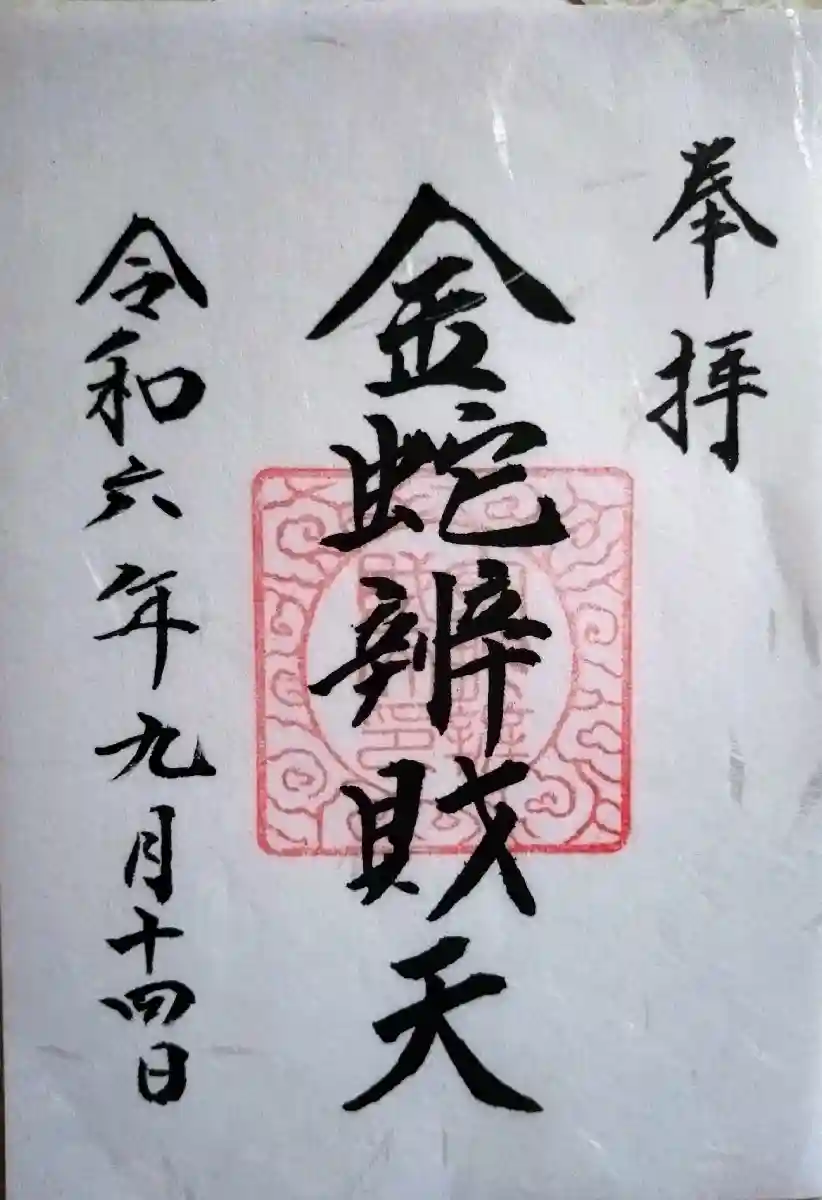 奉拝
金蛇辨財天
令和六年九月十四日